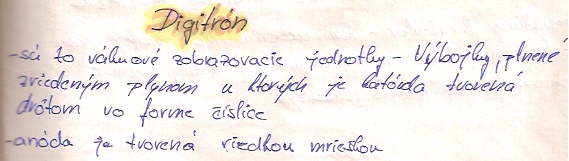 Digitrón
- sú to vákuové zobrazovacie jednotky - Výbojky, plnené
zriedeným plynom u ktorých je katóda tvorená
drôtom vo forme číslice
- anóda je tvorená riedkou mriežkou